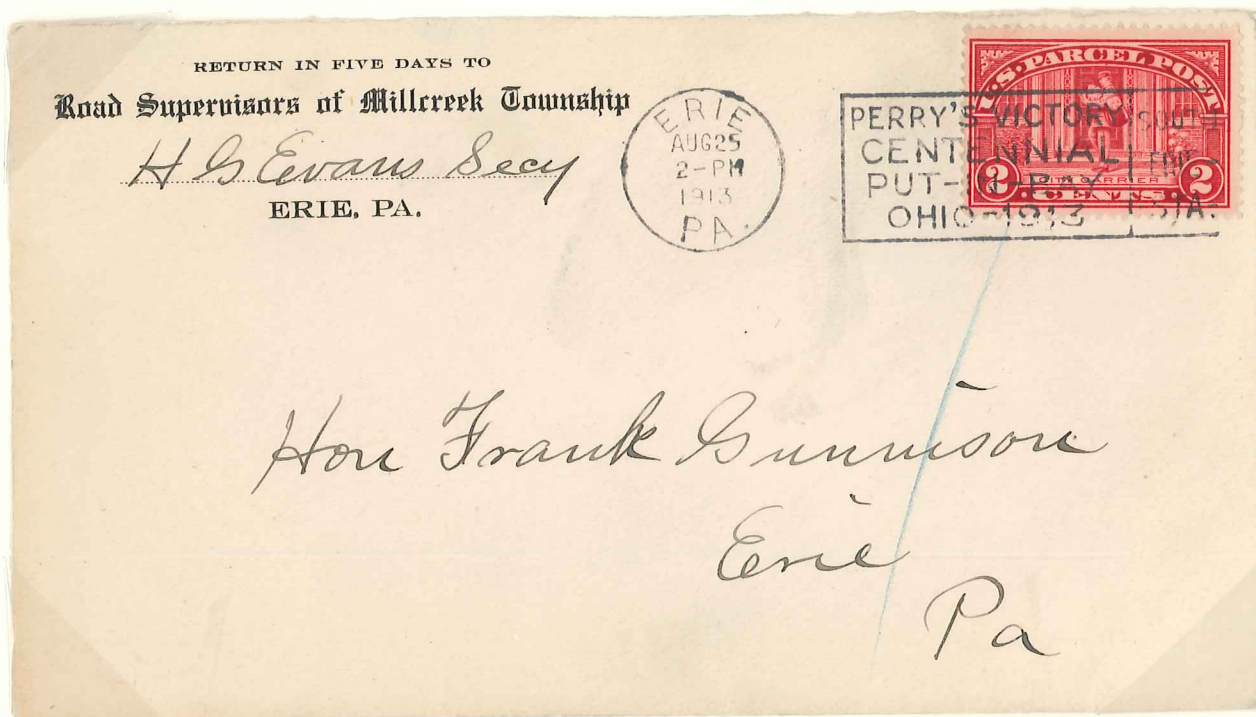 RETURN IN FIVE DAYS TO
Road Supervisors of Millcreek Township
H G Evans Secy
ERIE, PA.
ERIE
AUG 25
2-PM
1913
PA.
PERRY'S VICTORY
CENTENNIAL
PUT-IN-BAY
OHIO-1913
SOUTH
ERIE
STA.
U.S. PARCEL POST
CITY CARRIER
2 CENTS 2
Hon Frank Gunnison
Erie
Pa